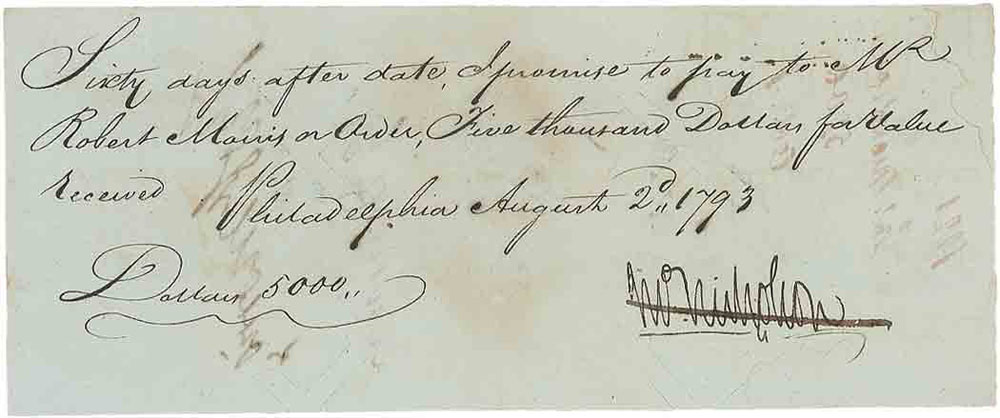 Sixty days after date, I promise to pay to Mr
Robert Morris or Order, Five thousand Dollars for Value
received Philadelphia August 2d,, 1793
Dollars 5000,,
Jno. Nicholson